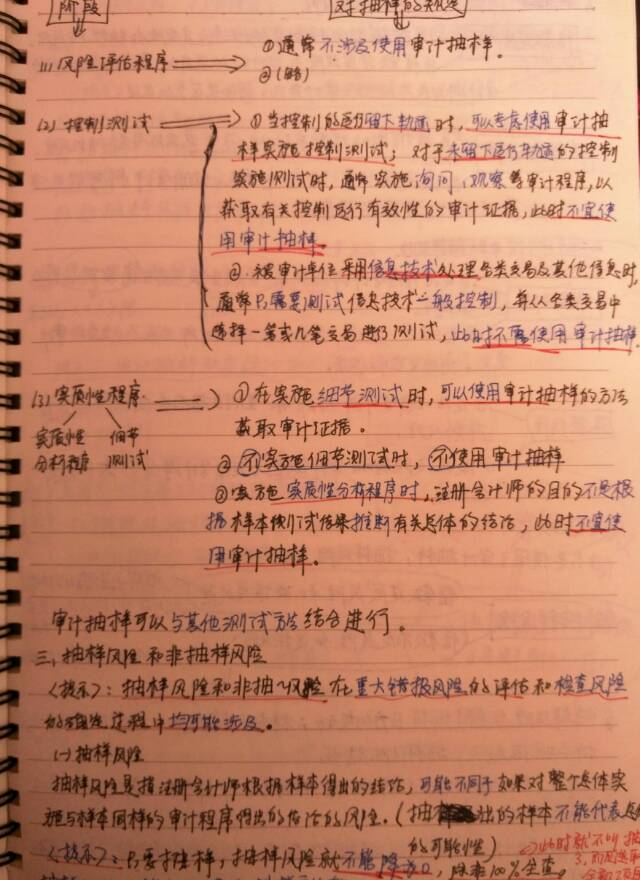 阶段 对抽样的来说
(1) 风险评估程序 ① 通常不涉及使用审计抽样。
②(略)
(2) 控制测试 ① 当控制的运行留下轨迹时,可以考虑使用审计抽
样实施控制测试;对于未留下运行轨迹的控制
实施测试时,通常实施询问、观察等审计程序,以
获取有关控制运行有效性的审计证据,此时不宜使
用审计抽样。
②. 被审计单位采用信息技术处理各类交易及其他信息时,
通常只需要测试信息技术一般控制,并从各类交易中
选择一笔或几笔交易进行测试,此时不需使用审计抽样.
(3) 实质性程序 ① 在实施细节测试时,可以使用审计抽样的方法
实质性 细节 获取审计证据。
分析程序 测试 ② 不实施细节测试时,不使用审计抽样
③ 实施实质性分析程序时,注册会计师的目的不是根
据样本测试结果推断有关总体的结论,此时不宜使
用审计抽样。
审计抽样可以与其他测试方法结合进行。
三、抽样风险和非抽样风险
<提示>:抽样风险和非抽~风险在重大错报风险的评估和检查风险
的确定过程中均可能涉及。
(一) 抽样风险
抽样风险是指注册会计师根据样本得出的结论,可能不同于如果对整个总体实
施与样本同样的审计程序得出的结论的风险。(抽出的样本不能代表总
的可能性) 此时就不叫
<提示>:只要抽样,抽样风险就不能降为0,除非100%全查。